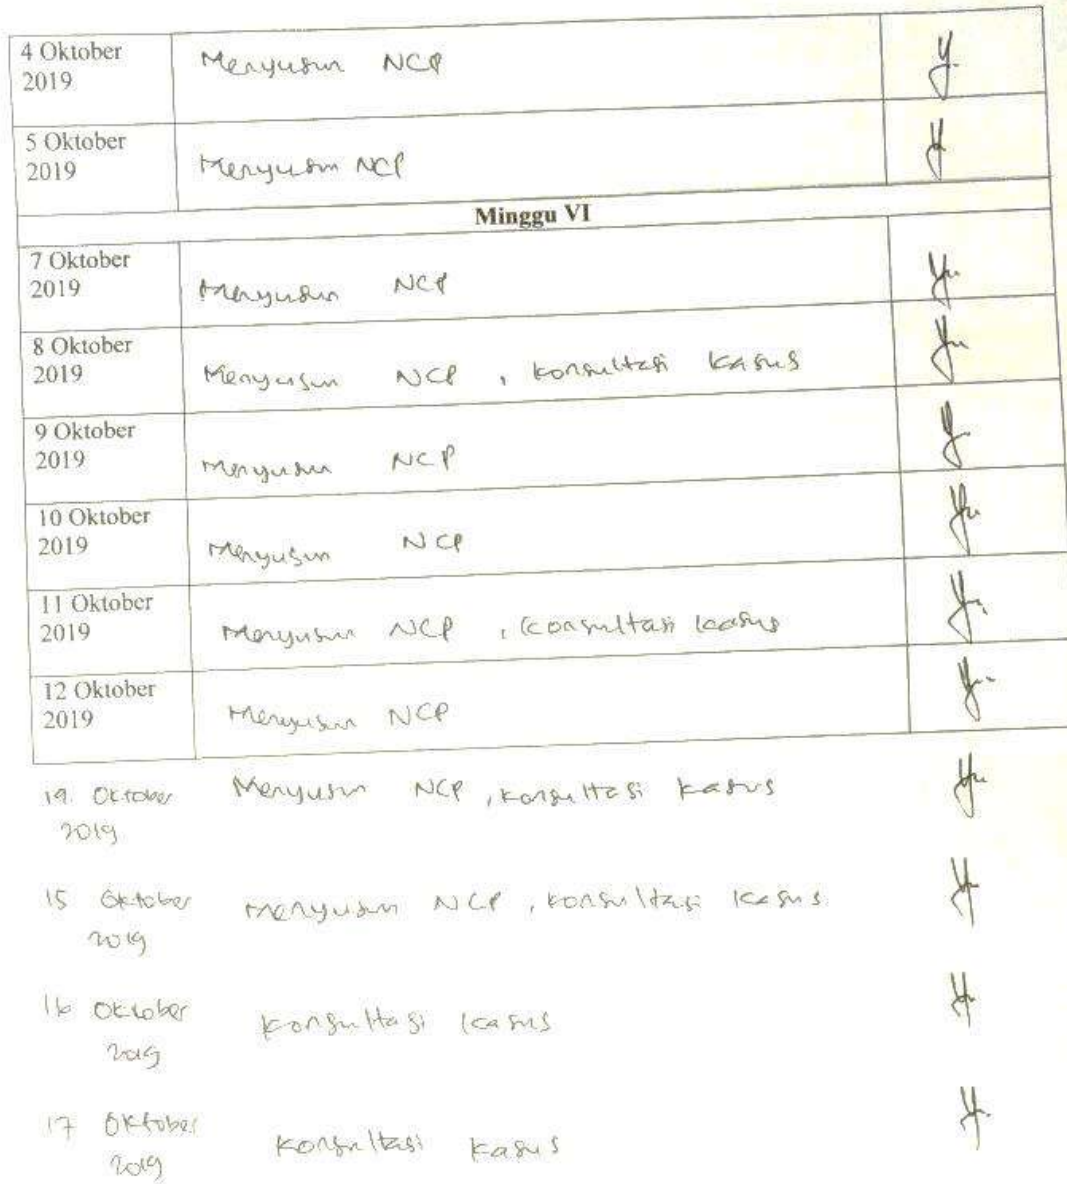 4 Oktober Menyusun NCP
2019
5 Oktober
2019 Menyusun NCP
Minggu VI
7 Oktober
2019 Menyusun NCP
8 Oktober
2019 Menyusun NCP , konsultasi kasus
9 Oktober
2019 Menyusun NCP
10 Oktober
2019 Menyusun NCP
11 Oktober
2019 Menyusun NCP , konsultasi kasus
12 Oktober
2019 Menyusun NCP
19. Oktober Menyusun NCP , konsultasi kasus
2019
15 Oktober Menyusun NCP , konsultasi kasus
2019
16 Oktober konsultasi kasus
2019
17 Oktober konsultasi kasus
2019